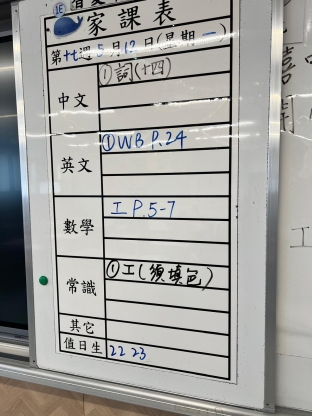 1E
家課表
第十七週 5月12日(星期一)
中文 ①詞(十四)
英文 ①WB P.24
數學 工 P.5-7
常識 ①工(須填色)
其它
值日生 22 23